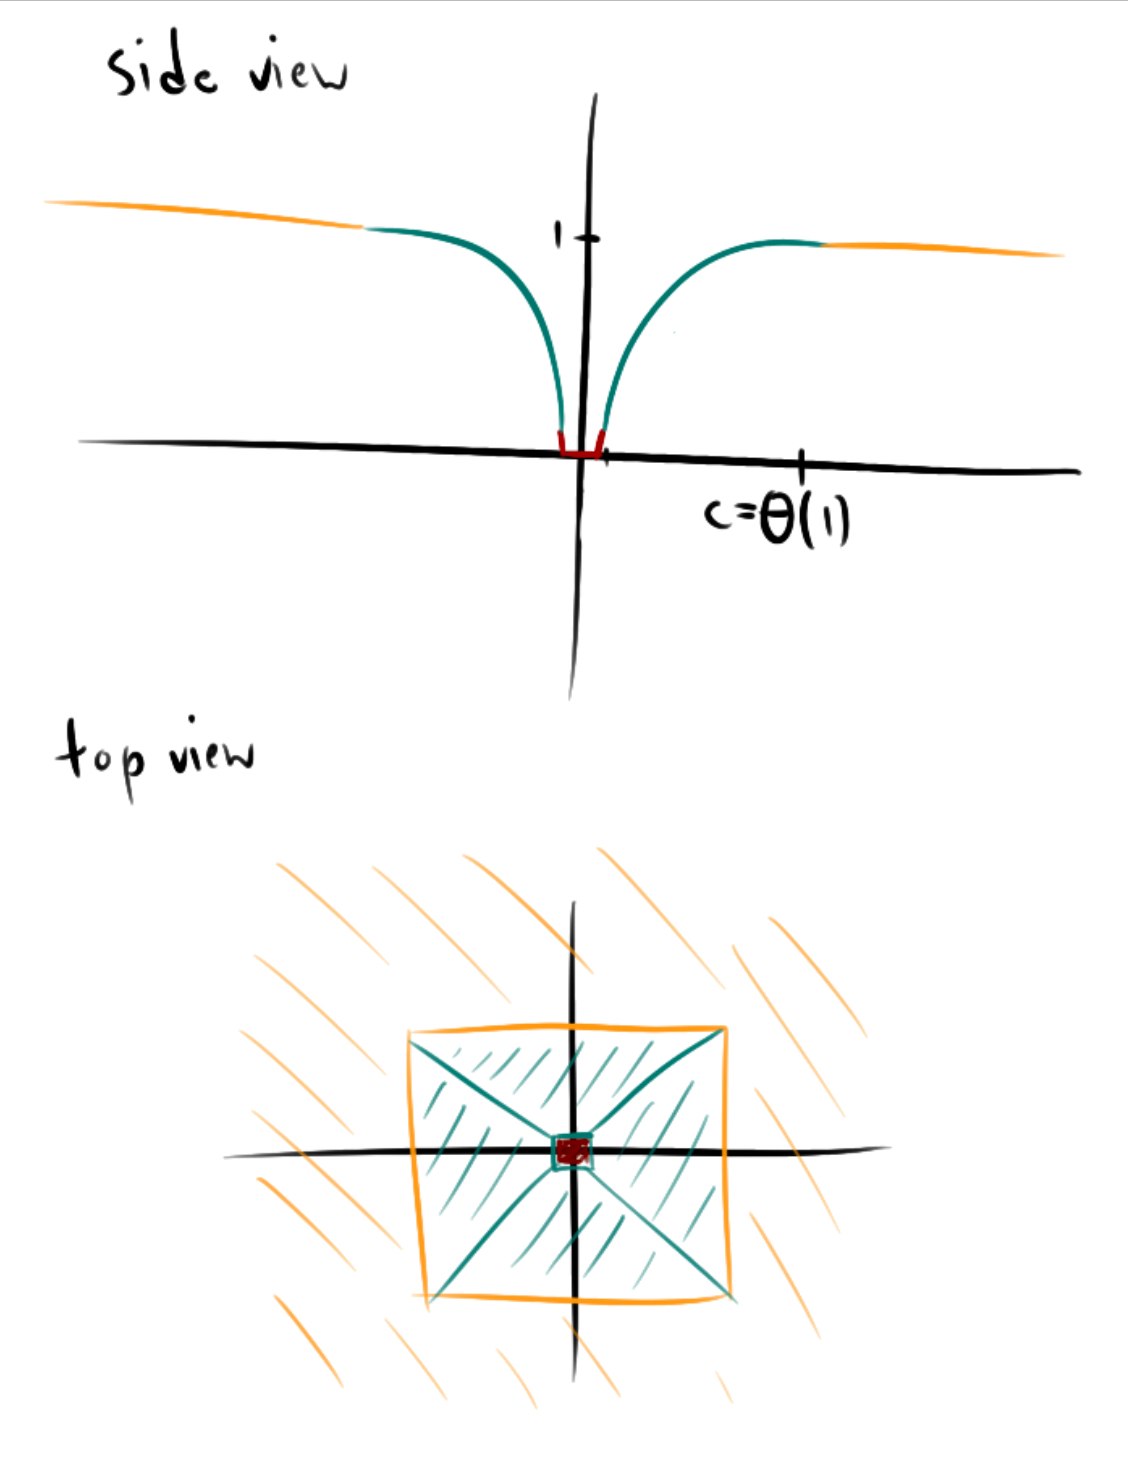 side view
1
c=θ(1)
top view